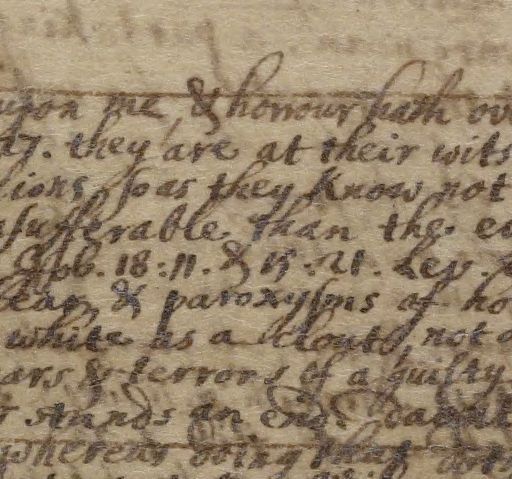 upon me, & horrour hath ov
27. they are at their wits
tions, so as they know not
nsufferable than the
Job. 18:11. & 15:21. Lev.
fear, & paroxysms of ho
white as a clout, not a
ears & terrors of a guilty
stands an end.
whereas being they